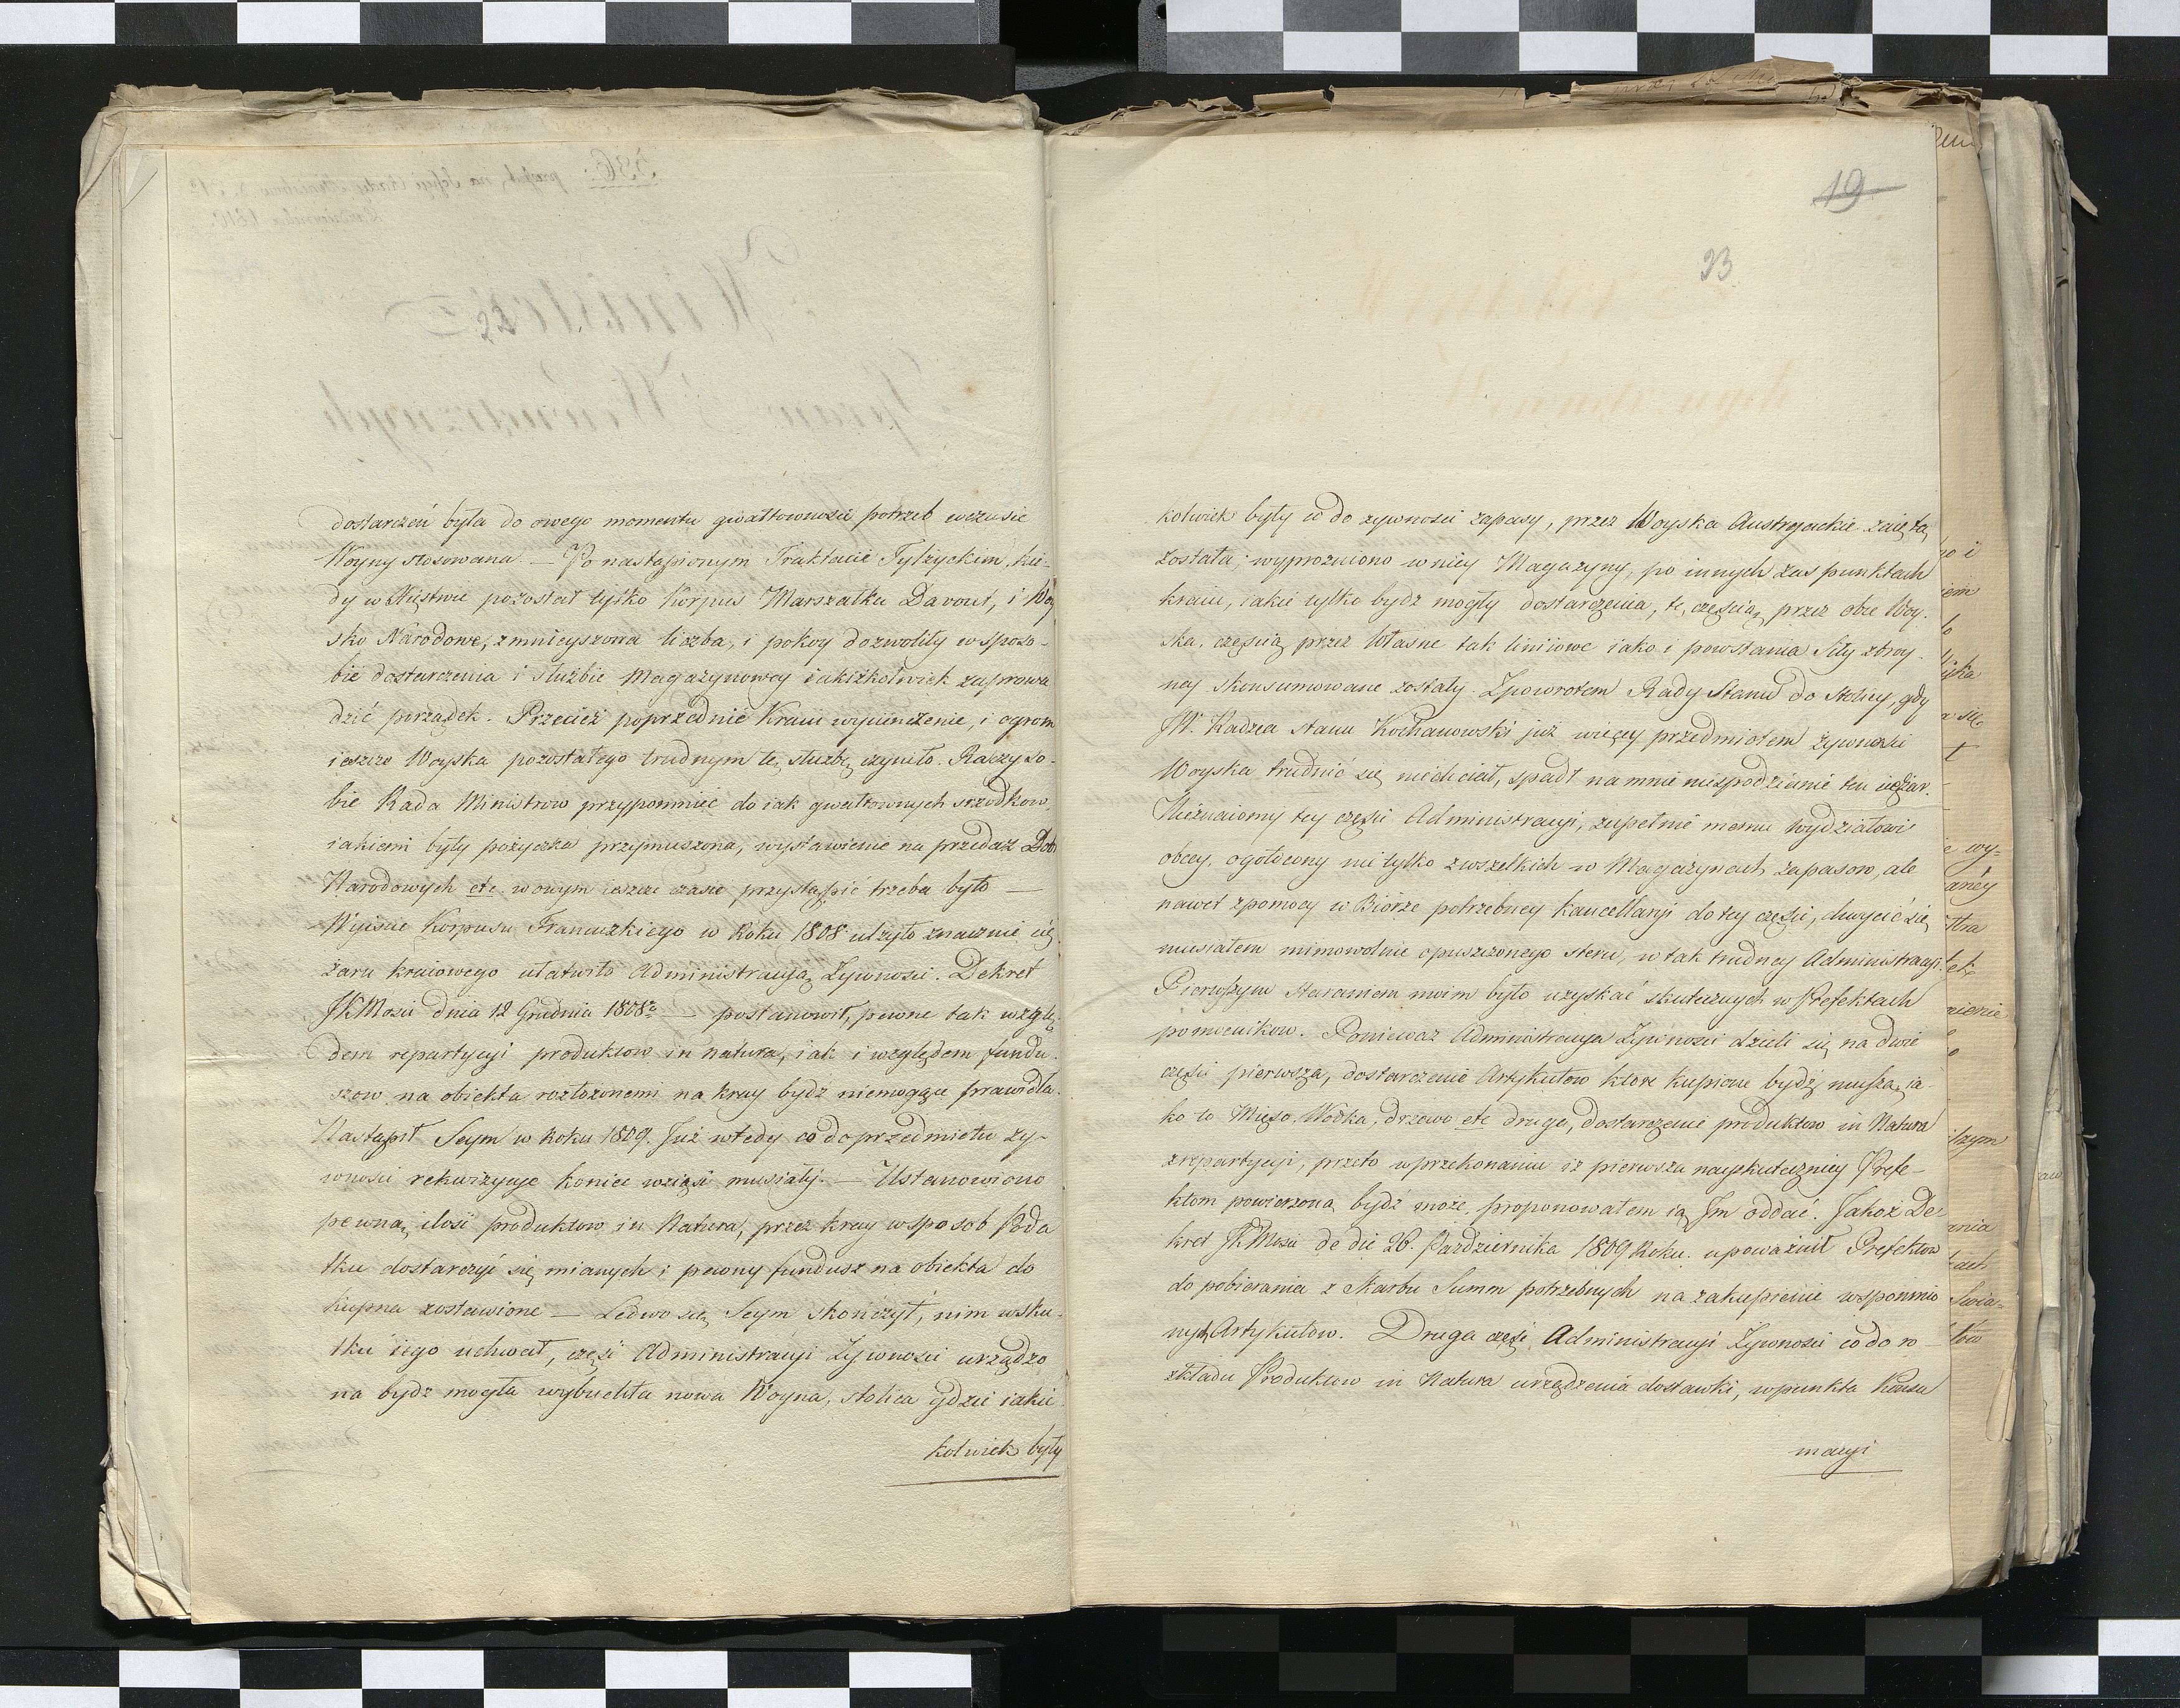 dostarczeń była do owego momentu gwałtowności potrzeb wczasie
Woyny stosowana. — Po nastąpionym Traktacie Tylżyckim, kie-
dy w Xięstwie pozostał tylko Korpus Marszałka Davout, i Woy
sko Narodowe, zmnieyszona liczba, i pokoy dozwoliły w sposo-
bie dostarczenia i służbie Magazynowey iakiżkolwiek zaprowa
dzić porządek. Przecież poprzednie Kraiu wycieńczenie, i ogrom
ieszcze Woyska pozostałego trudnym tę służbę czyniło. Raczy so-
bie Rada Ministrow przypomnieć do iak gwałtownych srzodkow,
iakiemi były pożyczka przymuszona, wystawienie na przedaż Dobr
Narodowych etc. w owym ieszcze czasie przystąpić trzeba było —
Wyiście Korpusu Francuzkiego w Roku 1808 ulżyło znacznie cię
żaru kraiowego ułatwiło Administracyą Żywności. Dekret
JKMości dnia 12 Grudnia 1808. — postanowił, pewne tak wzglę
dem repartycyi produktow in natura, iak i względem fundu.
szow na obiekta rozłożonemi na kray bydź niemogące prawidła.
Nastąpił Seym w Roku 1809. Już wtedy co do przedmiotu ży-
wności rekwizycye koniec wziąść musiały. — Ustanowiono
pewną ilość produktow in Natura, przez kray wsposob Poda
tku dostarczyć się mianych i pewny fundusz na obiekta do
kupna zostawione — Ledwo się Seym skończył, nim wsku.
tku iego uchwał, część Administracyi Żywności urządzo
na bydź mogła wybuchła nowa Woyna, stolica gdzie iakie
kolwiek były
19
23
kolwiek były co do żywności zapasy, przez Woyska Austryackie zaiętą
została; wyprozniono w niey Magazyny, po innych zaś punktach
kraiu, iakie tylko bydź mogły dostarczenia, te, częścią przez obce Woy.
ska, częścią przez Własne tak liniiowe iako i powstania Siły zbroy.
ney skonsumowane zostały. Zpowrotem Rady Stanu do Stolicy, gdy
JW. Radzca Stanu Kochanowski już więcey przedmiotem żywności
Woyska trudnić się niechciał, spadł na mnie niespodzianie ten ciężar.
Nieznaiomy tey części Administracyi, zupełnie memu wydziałowi
obcey, ogołocony nietylko zwszelkich w Magazynach zapasow, ale
nawet zpomocy w Biórze potrzebney Kancellaryi do tey części, chwycić się
musiałem mimowolnie opuszczonego steru, w tak trudney Administracyi.
Pierwszym staraniem moim było uzyskać skutecznych w Prefektach
pomocnikow. Ponieważ Administracya Żywności dzieli się na dwie
części pierwsza, dostarczenie Artykułow które kupione bydź muszą, ia-
ko to Mięso, Wodka, drzewo etc druga, dostarczenie produktow in Natura
zrepartycyi, przeto wprzekonaniu iż pierwsza nayskuteczniey Prefe-
ktom powierzoną bydź może, proponowałem ią Jm oddać. Jakoż De-
kret JKMości de die 26. Października 1809 Roku. upoważnił Prefektow
do pobierania z Skarbu Summ potrzebnych na zakupienie wspomnio
nych Artykułow. Druga część Administracyi Żywności co do ro
zkładu Produktow in Natura urządzenia dostawki, wpunkta konsu
macyi